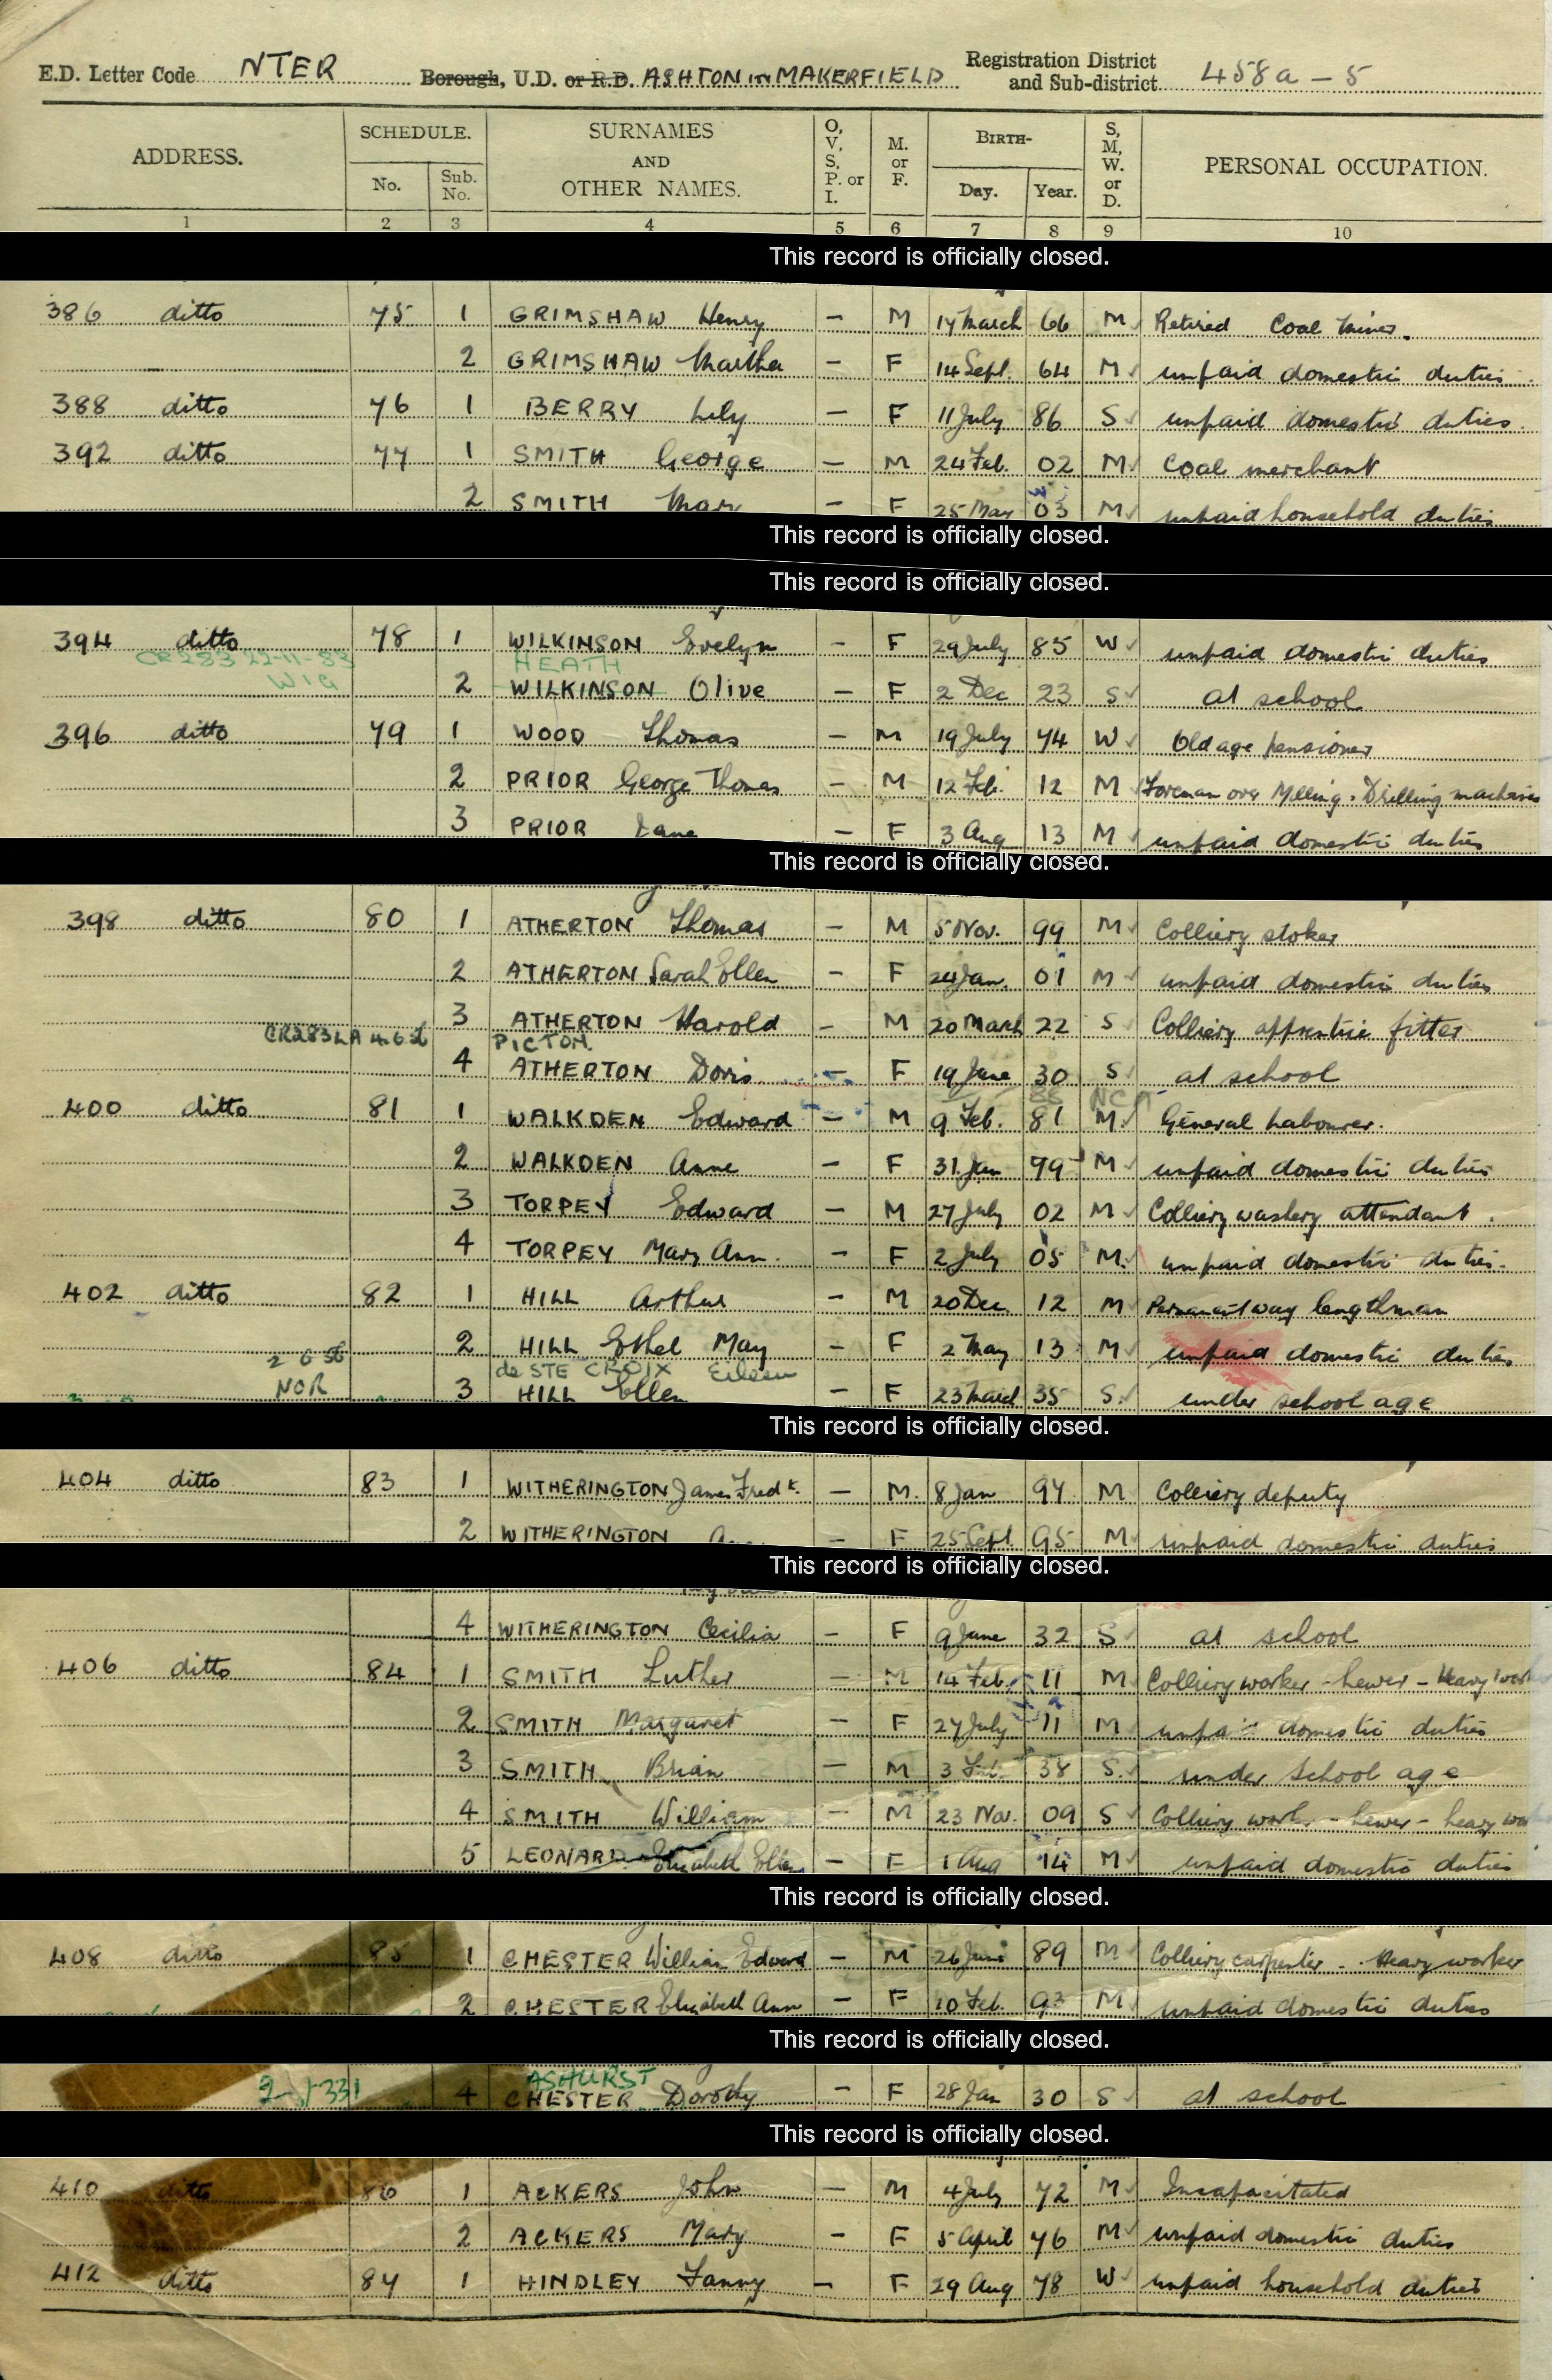 E.D. Letter Code NTER Borough, U.D. or R.D. ASHTON in MAKERFIELD Registration District and Sub-district 458a - 5
ADDRESS. SCHEDULE. No. Sub. No. SURNAMES AND OTHER NAMES. O, V, S, P. or I. M. or F. BIRTH- Day. Year. S, M, W. or D. PERSONAL OCCUPATION.
1 2 3 4 5 6 7 8 9 10
This record is officially closed.
386 ditto 75 1 GRIMSHAW Henry - M 17 March 66 M Retired Coal Miner.
2 GRIMSHAW Martha - F 14 Sept. 64 M unpaid domestic duties.
388 ditto 76 1 BERRY Lily - F 11 July 86 S unpaid domestic duties.
392 ditto 77 1 SMITH George - M 24 Feb. 02 M Coal merchant
2 SMITH Mary - F 25 May 03 M unpaid household duties
This record is officially closed.
This record is officially closed.
394 ditto 78 1 WILKINSON Evelyn - F 29 July 85 W unpaid domestic duties
CR283 22-11-83 HEATH
WIG 2 WILKINSON Olive - F 2 Dec 23 S at school
396 ditto 79 1 WOOD Thomas - M 19 July 74 W Old age pensioner
2 PRIOR George Thomas - M 12 Feb. 12 M Foreman over Milling. Drilling machines
3 PRIOR Jane - F 3 Aug 13 M unpaid domestic duties
This record is officially closed.
398 ditto 80 1 ATHERTON Thomas - M 5 Nov. 99 M Colliery stoker
2 ATHERTON Sarah Ellen - F 24 Jan. 01 M unpaid domestic duties
3 ATHERTON Harold - M 20 March 22 S Colliery apprentice fitter
CR283 LA PICTON
4 ATHERTON Doris - F 19 June 30 S at school
88 NCA
400 ditto 81 1 WALKDEN Edward - M 9 Feb. 81 M General Labourer.
2 WALKDEN Anne - F 31 Jan 99 M unpaid domestic duties
3 TORPEY Edward - M 27 July 02 M Colliery washery attendant.
4 TORPEY Mary Ann. - F 2 July 05 M. unpaid domestic duties.
402 ditto 82 1 HILL Arthur - M 20 Dec. 12 M Permanent way lengthman
2 HILL Ethel May - F 2 May 13 M unpaid domestic duties
2 6 56 de STE CROIX Eileen
NOR 3 HILL Ellen - F 23 March 35 S. under school age
This record is officially closed.
404 ditto 83 1 WITHERINGTON James Fredk. - M. 8 Jan 94 M Colliery deputy
2 WITHERINGTON - F 25 Sept. 95 M unpaid domestic duties
This record is officially closed.
4 WITHERINGTON Cecilia - F 9 June 32 S at school
406 ditto 84 1 SMITH Luther - M 14 Feb. 11 M Colliery worker - hewer - Heavy
2 SMITH Margaret - F 27 July 11 M unpaid domestic duties
3 SMITH Brian - M 3 Feb. 38 S. under School age
4 SMITH William - M 23 Nov. 09 S Colliery worker - hewer - heavy
5 LEONARD Elizabeth Ellen - F 1 Aug 14 M unpaid domestic duties
This record is officially closed.
408 ditto 85 1 CHESTER William Edward - M 26 June 89 M Colliery carpenter - Heavy worker
2 CHESTER Elizabeth Ann - F 10 Feb. 93 M unpaid domestic duties
This record is officially closed.
ASHURST
4 CHESTER Dorothy - F 28 Jan 30 S at school
This record is officially closed.
410 ditto 86 1 ACKERS John - M 4 July 72 M Incapacitated
2 ACKERS Mary - F 5 April 76 M unpaid domestic duties
412 ditto 87 1 HINDLEY Fanny - F 29 Aug 78 W unpaid household duties